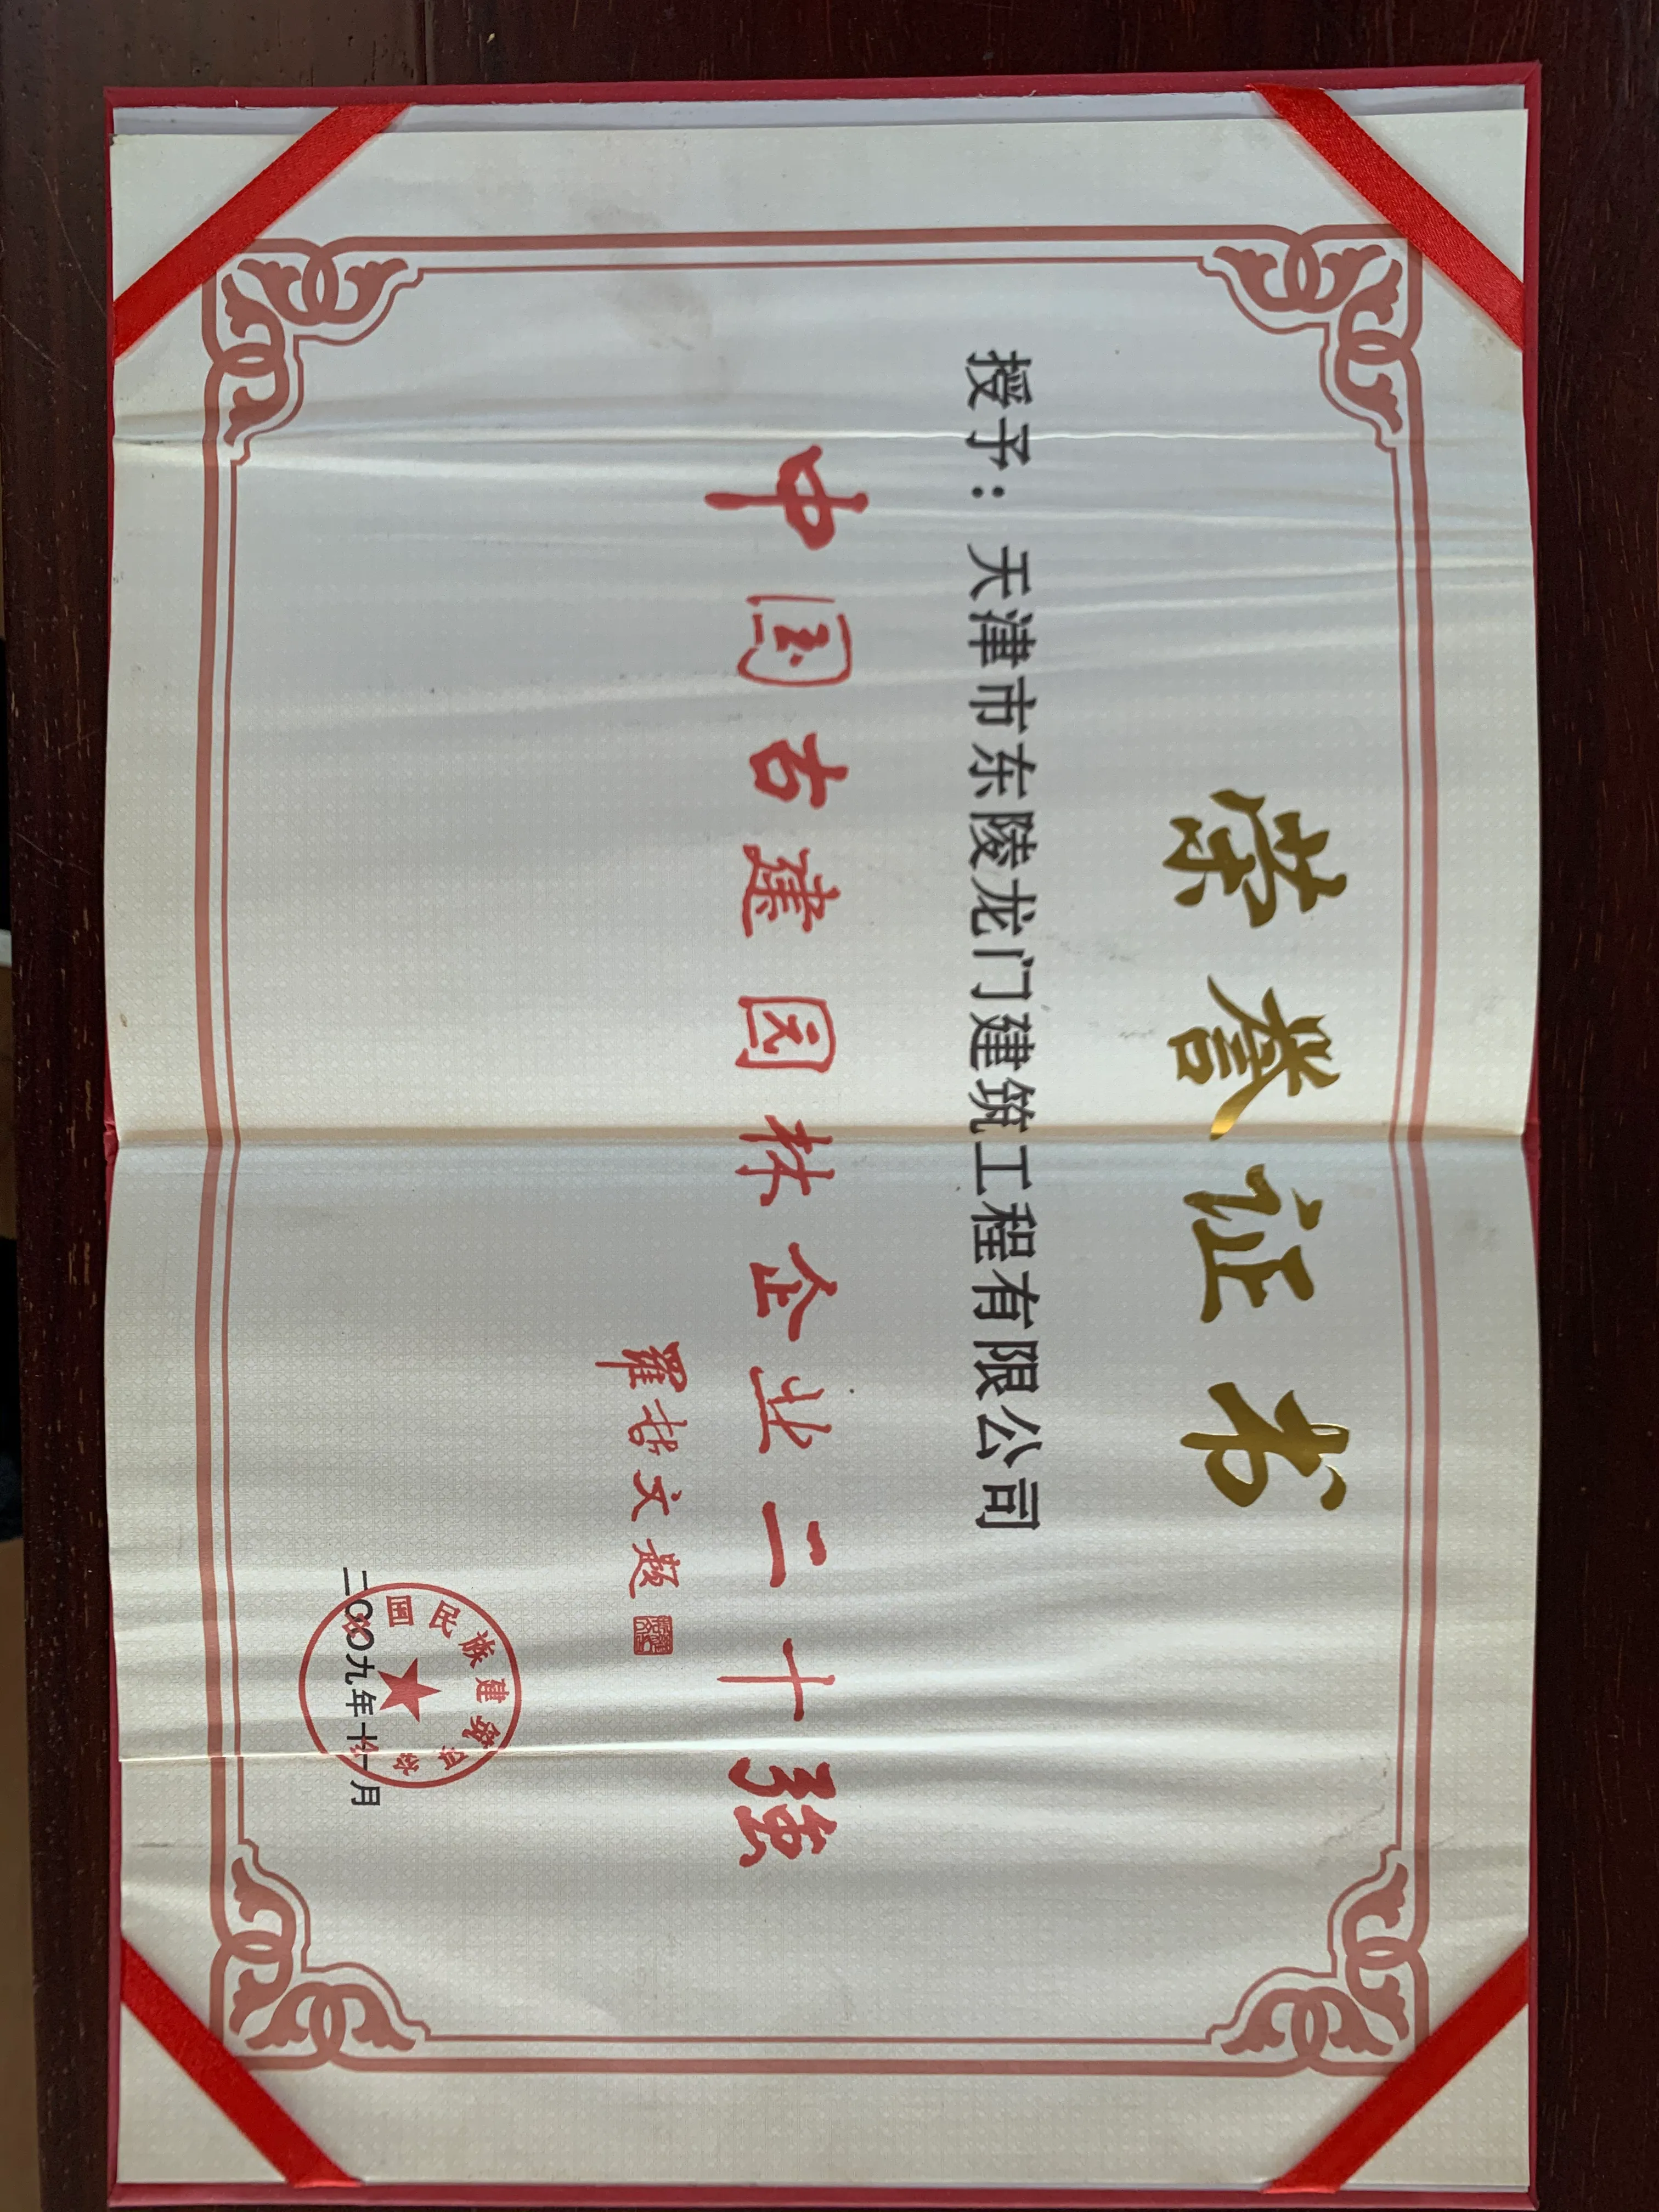 荣誉证书
授予：天津市东陵龙门建筑工程有限公司
中国古建园林企业二十强
羅哲文题
中国民族建筑研究会
二〇〇九年十一月